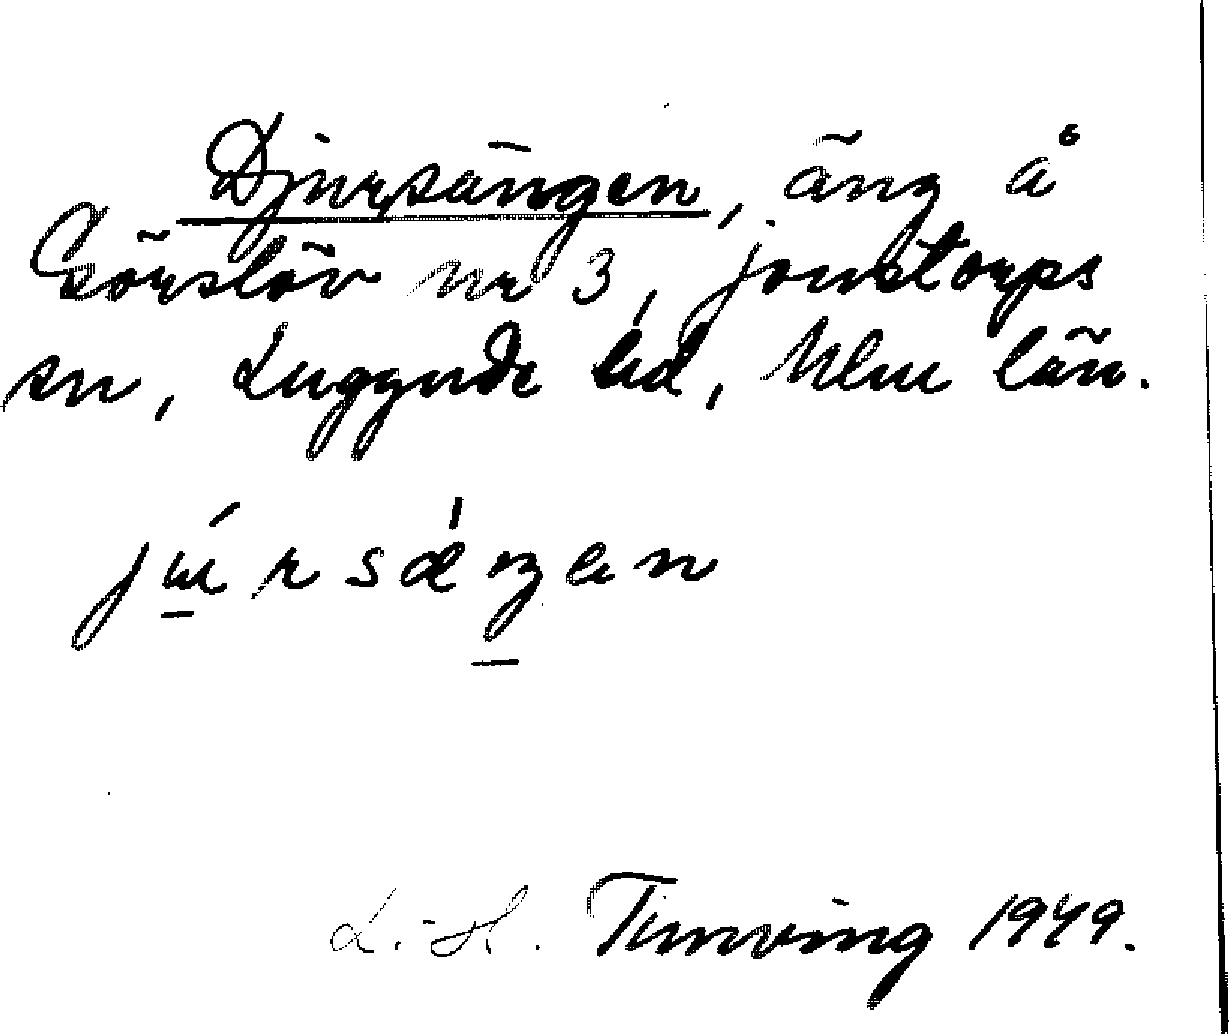 Djursängen, äng å
Görslöv nr 3, Jonstorps
sn, Luggude hd, Mlm län.
júrsǽŋen
L. H. Tunving 1949.